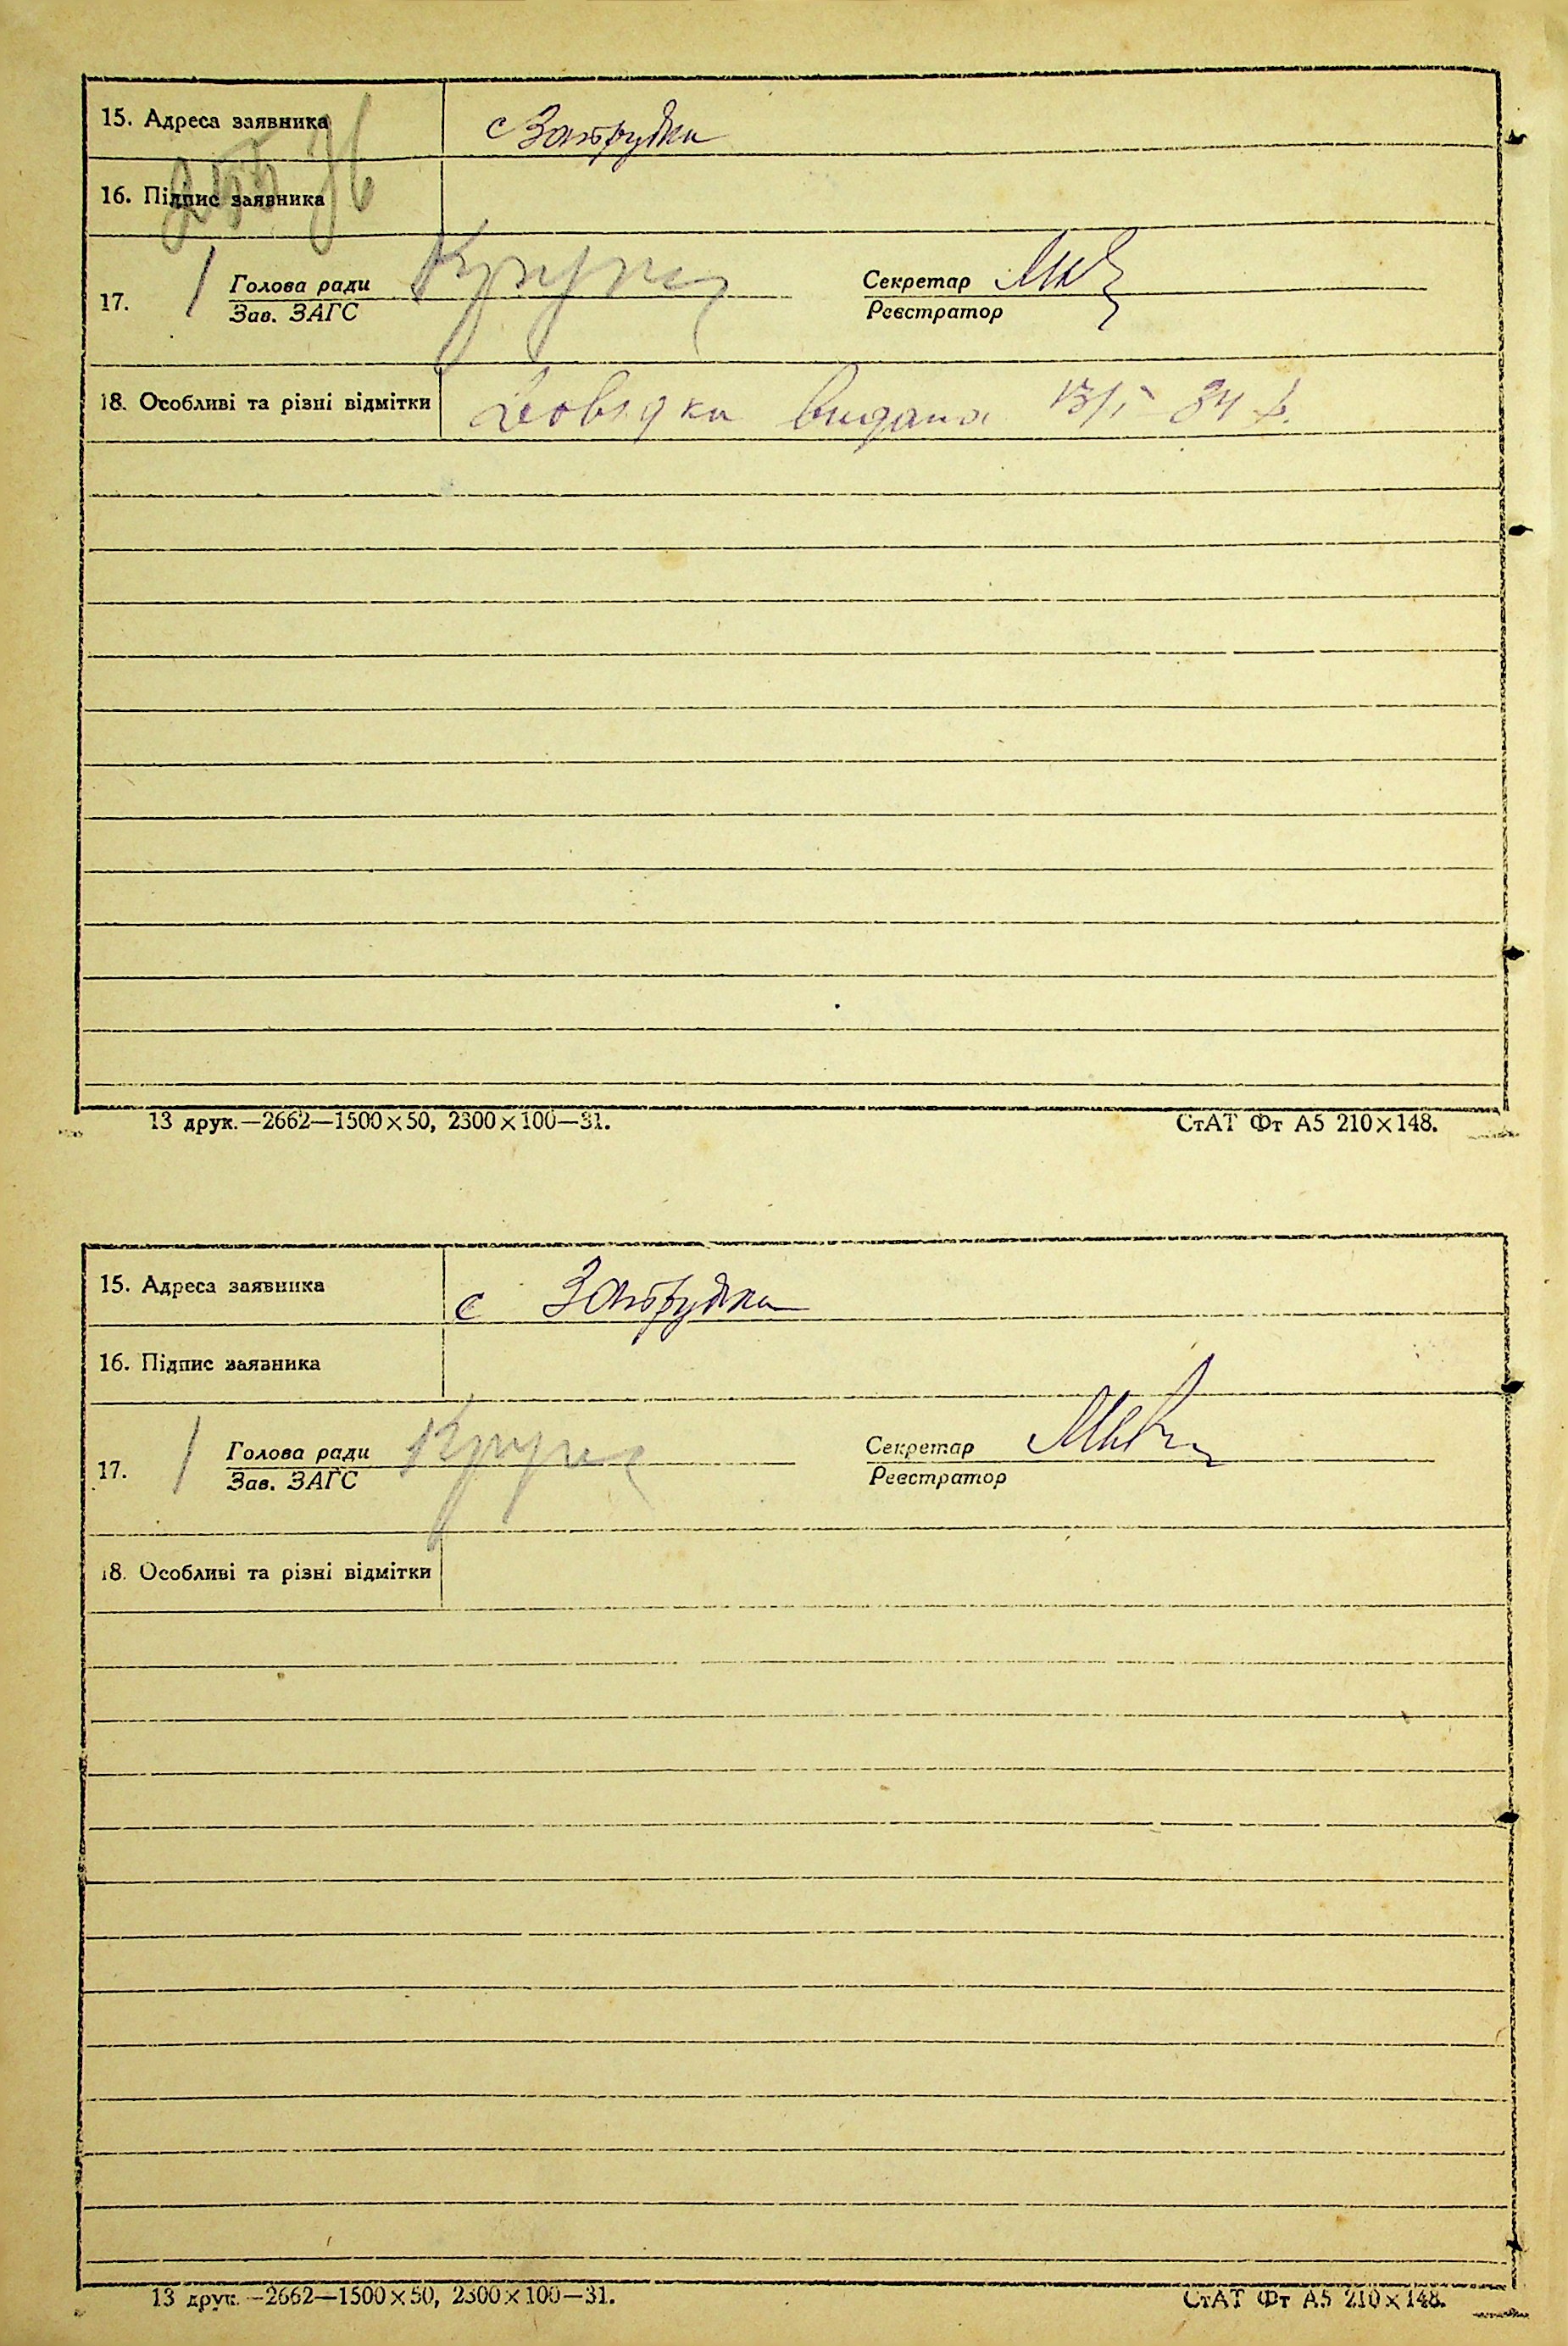 15. Адреса заявника с Затрудки
16. Підпис заявника
17. Голова ради Секретар
Зав. ЗАГС Реєстратор
18. Особливі та різні відмітки Довідка видана 13/І 34 р.
13 друк.—2662—1500×50, 2300×100—31. СтАТ Фт А5 210×148.
15. Адреса заявника с Затрудка
16. Підпис заявника
17. Голова ради Секретар
Зав. ЗАГС Реєстратор
18. Особливі та різні відмітки
13 друк.—2662—1500×50, 2300×100—31. СтАТ Фт А5 210×148.